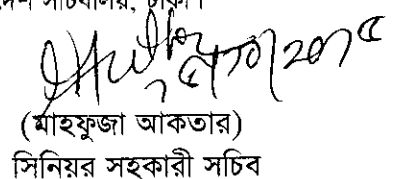 সচিবালয়, ঢাকা।
(মাহফুজা আকতার)
সিনিয়র সহকারী সচিব